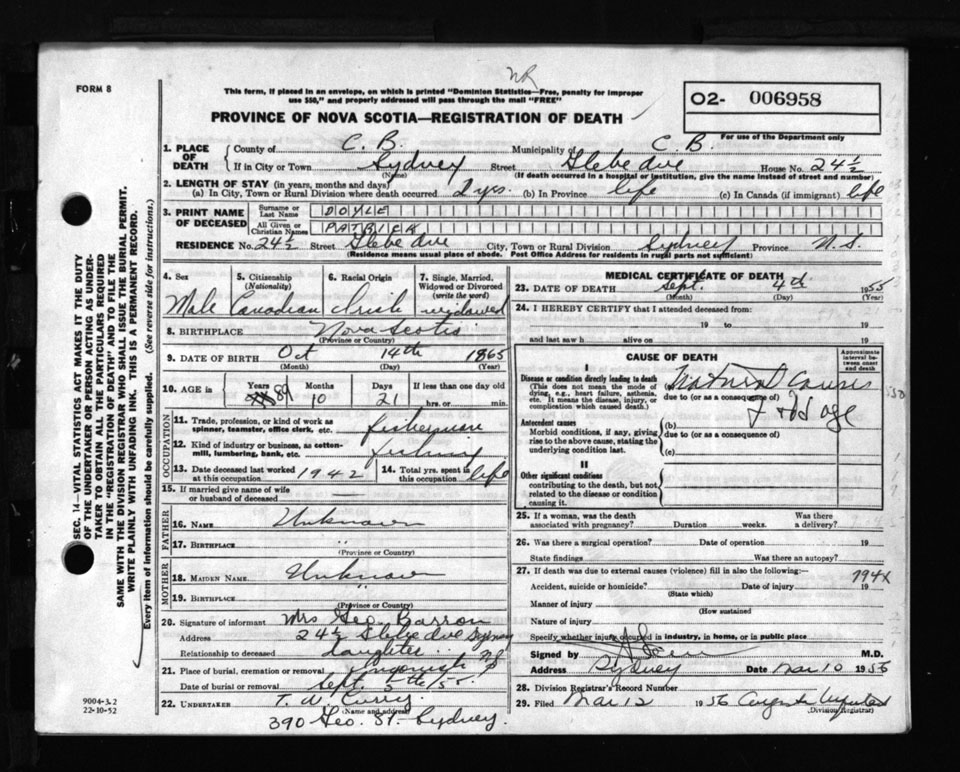 NR
FORM 8
This form, if placed in an envelope, on which is printed "Dominion Statistics—Free, penalty for improper
use $50," and properly addressed will pass through the mail "FREE"
O2- 006958
For use of the Department only
PROVINCE OF NOVA SCOTIA—REGISTRATION OF DEATH
1. PLACE OF DEATH County of C. B. Municipality of C. B.
If in City or Town Sydney Street Glebe Ave House No. 24½
(Name) (If death occurred in a hospital or institution, give the name instead of street and number)
2. LENGTH OF STAY (in years, months and days)
(a) In City, Town or Rural Division where death occurred 2 yrs. (b) In Province life (c) In Canada (if immigrant) life
3. PRINT NAME OF DECEASED Surname or Last Name DOYLE
All Given or Christian Names PATRICK
RESIDENCE No. 24½ Street Glebe Ave City, Town or Rural Division Sydney Province N.S.
(Residence means usual place of abode. Post Office Address for residents in rural parts not sufficient)
4. Sex 5. Citizenship (Nationality) 6. Racial Origin 7. Single, Married, Widowed or Divorced (write the word)
Male Canadian Irish widowed
8. BIRTHPLACE Nova Scotia
(Province or Country)
9. DATE OF BIRTH Oct 14th 1865
(Month) (Day) (Year)
10. AGE in Years 89 Months 10 Days 21 If less than one day old
hrs. or min.
OCCUPATION
11. Trade, profession, or kind of work as spinner, teamster, office clerk, etc. fisherman
12. Kind of industry or business, as cotton-mill, lumbering, bank, etc. fishing
13. Date deceased last worked at this occupation 1942 14. Total yrs. spent in this occupation life
15. If married give name of wife or husband of deceased —
FATHER
16. NAME Unknown
17. BIRTHPLACE "
(Province or Country)
MOTHER
18. MAIDEN NAME Unknown
19. BIRTHPLACE "
(Province or Country)
20. Signature of informant Mrs Geo. Barron
Address 24½ Glebe Ave Sydney
Relationship to deceased daughter N.S.
21. Place of burial, cremation or removal Ingonish
Date of burial or removal Sept. 5th/55.
22. UNDERTAKER T. W. Curry
(Name and address)
390 Geo. St. Sydney.
MEDICAL CERTIFICATE OF DEATH
23. DATE OF DEATH Sept. 4th 1955
(Month) (Day) (Year)
24. I HEREBY CERTIFY that I attended deceased from:
19 to 19
and last saw h alive on 19
CAUSE OF DEATH
Approximate interval between onset and death
I
Disease or condition directly leading to death
(This does not mean the mode of dying, e.g., heart failure, asthenia, etc. It means the disease, injury, or complication which caused death.)
Natural Causes
due to (or as a consequence of)
Antecedent causes
Morbid conditions, if any, giving rise to the above cause, stating the underlying condition last.
(b) Old age
due to (or as a consequence of)
(c)
II
Other significant conditions
contributing to the death, but not related to the disease or condition causing it.
25. If a woman, was the death associated with pregnancy? Duration weeks. Was there a delivery?
26. Was there a surgical operation? Date of operation 19
State findings Was there an autopsy?
27. If death was due to external causes (violence) fill in also the following:— 794x
Accident, suicide or homicide? Date of injury 19
(State which)
Manner of injury
(How sustained
Nature of injury
Specify whether injury occurred in industry, in home, or in public place
Signed by M.D.
Address Sydney Date Mar 10 1956
28. Division Registrar's Record Number
29. Filed Mar 12 1956
(Division Registrar)
SEC. 14—VITAL STATISTICS ACT MAKES IT THE DUTY
OF THE UNDERTAKER OR PERSON ACTING AS UNDER-
TAKER TO OBTAIN ALL THE PARTICULARS REQUIRED
IN THE "REGISTRATION OF DEATH" AND TO FILE THE
SAME WITH THE DIVISION REGISTRAR WHO SHALL ISSUE THE BURIAL PERMIT.
WRITE PLAINLY WITH UNFADING INK. THIS IS A PERMANENT RECORD.
Every item of information should be carefully supplied. (See reverse side for instructions.)
9004-3.2
22-10-52